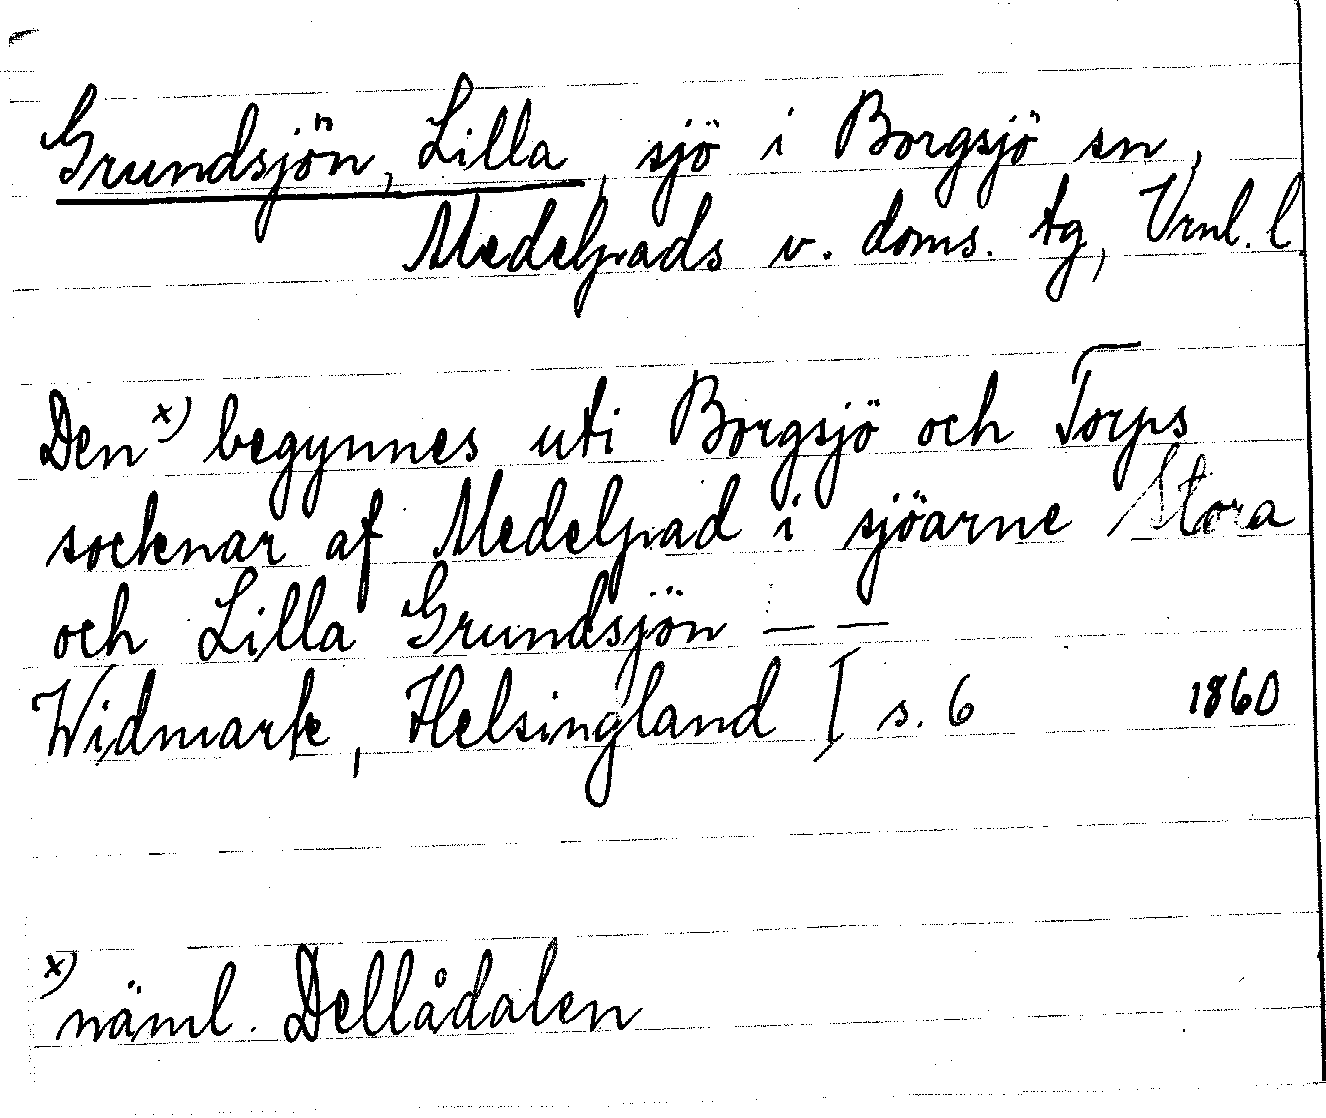 Grundsjön, Lilla, sjö i Borgsjö sn,
Medelpads v. doms. tg, Vrnl. l
Den x) begynnes uti Borgsjö och Torps
socknar af Medelpad i sjöarne Stora
och Lilla Grundsjön — —
Widmark, Helsingland I s. 6 1860
x) näml. Dellådalen